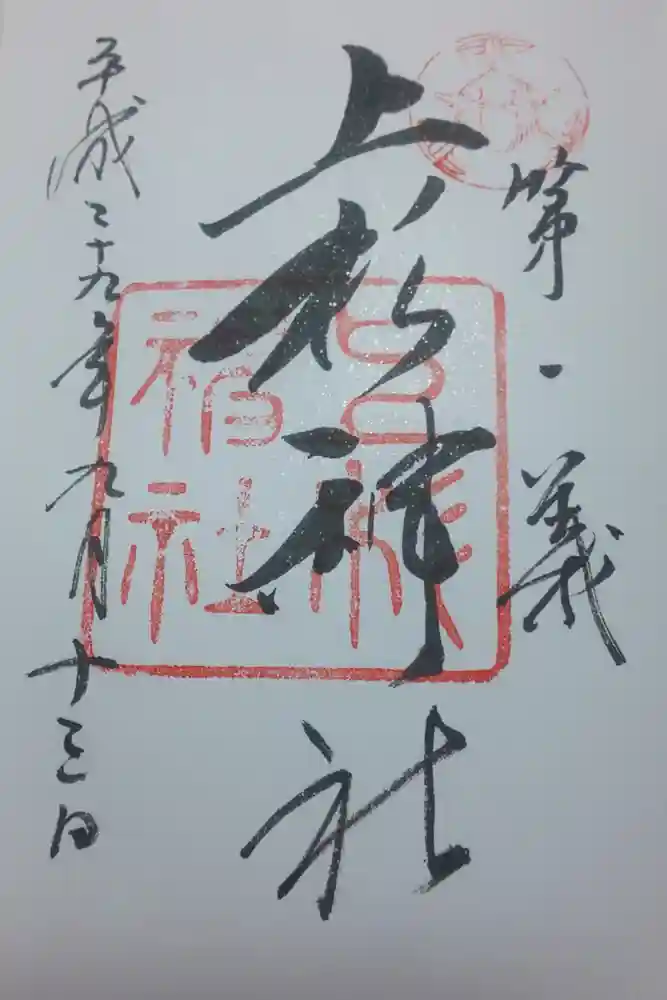 第一義
上杉神社
平成二十九年九月十三日
上杉
神社